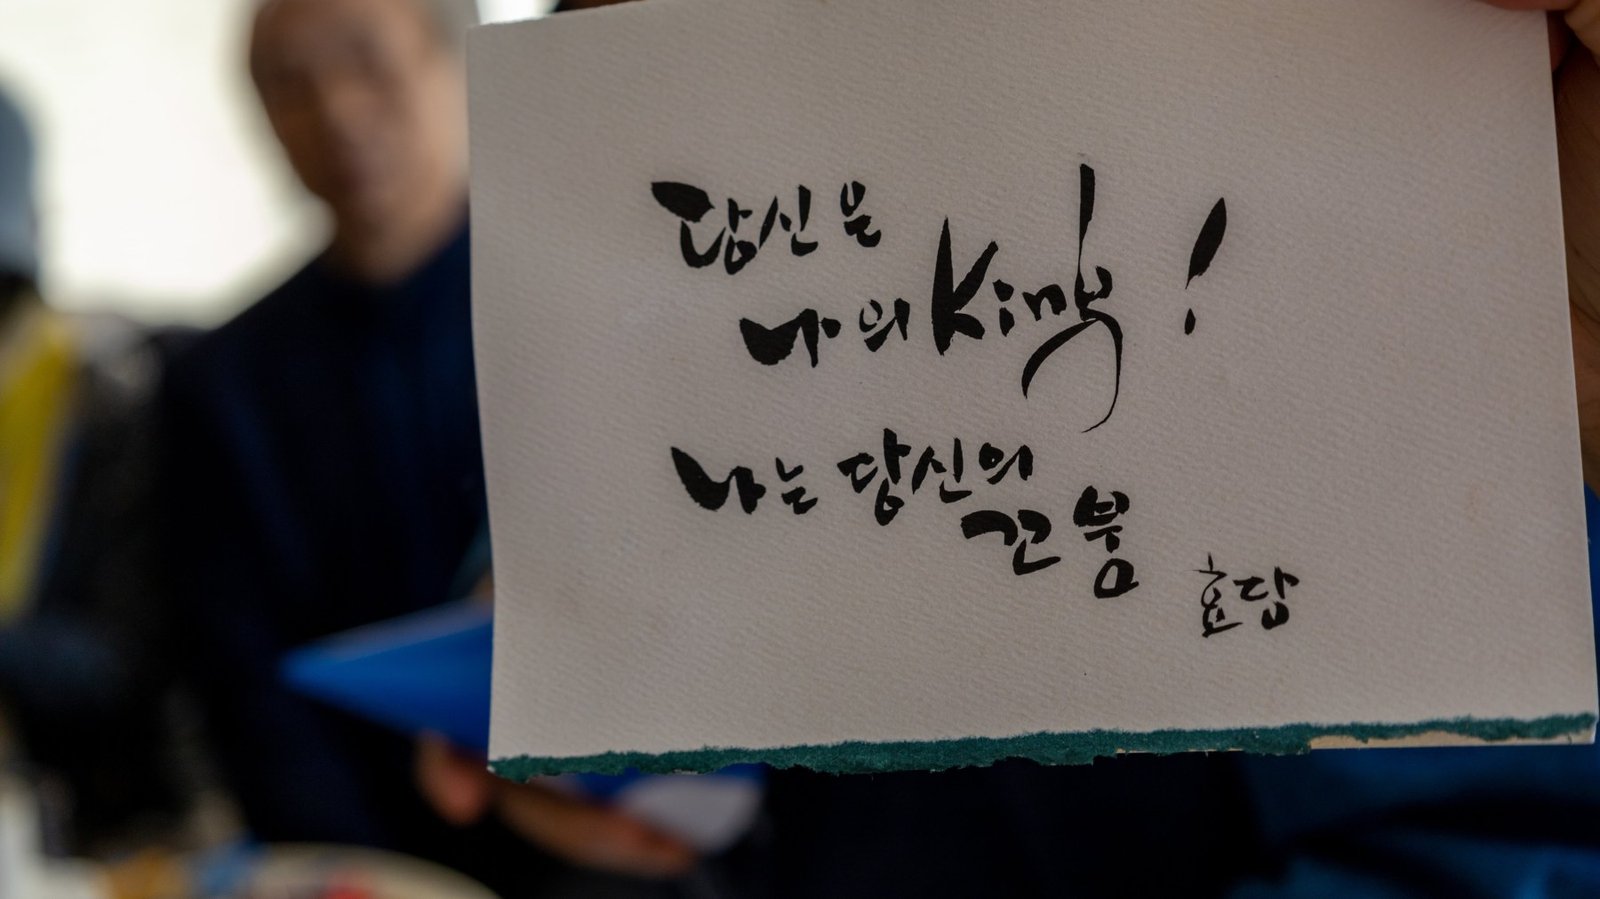 당신은
나의 King!
나는 당신의
꼬붕
효담